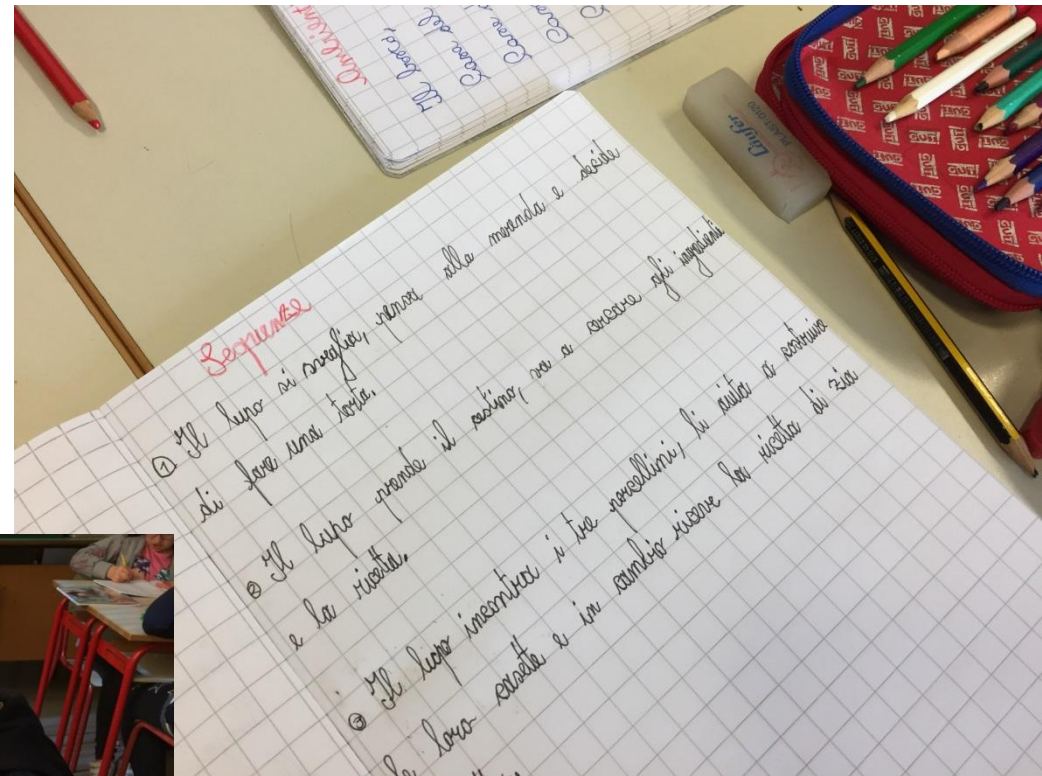 Ambient
Il bosco,
Casa del
Case
Casa
Läufer
PLAST-0120
Sequenze
① Il lupo si sveglia, pensa alla merenda e decide
di fare una torta.
② Il lupo prende il cestino, va a cercare gli ingredienti
e la ricetta.
③ Il lupo incontra i tre porcellini, li aiuta a costruire
le loro casette e in cambio riceve la ricetta di zia